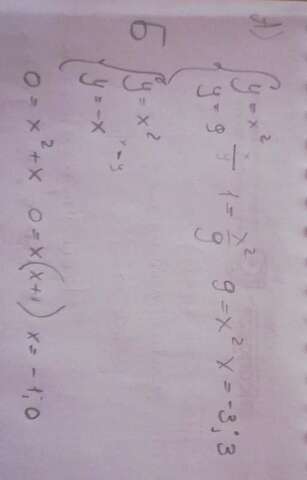 А)
{ y = x²
y = 9   1 = x²/9   9 = x²   x = -3; 3
Б
{ y = x²
y = -x
0 = x² + x   0 = x(x+1)   x = -1; 0